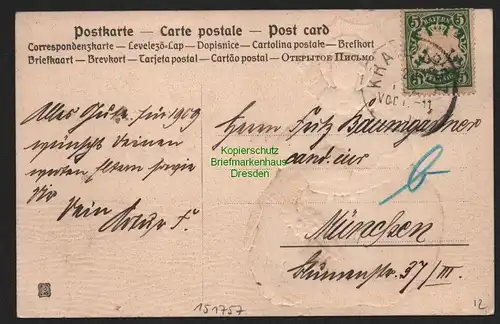 Postkarte — Carte postale — Post card
Correspondenzkarte — Levelező-Lap — Dopisnice — Cartolina postale — Brefkort
Briefkaart — Brevkort — Tarjeta postal — Cartão postal — Открытое Письмо
5 BAYERN 5
Alles Gute für 1909
wünscht Deinen
werten Eltern sowie
Dir
Dein
Herrn Fritz Baumgartner
cand. iur
b
München
Blumenstr. 37/III.
Kopierschutz
Briefmarkenhaus
Dresden
151757
12